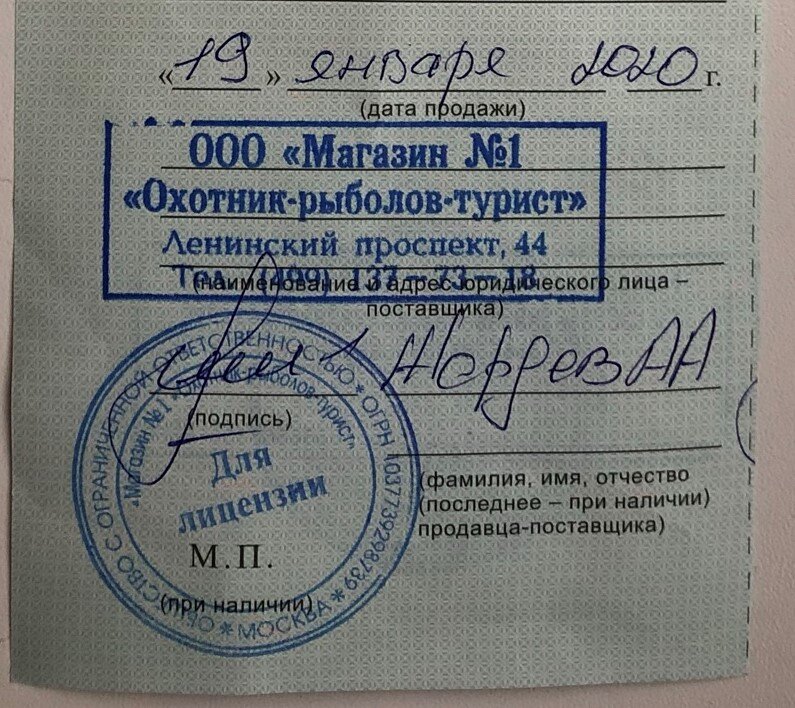 «19» января 2020 г.
(дата продажи)
ООО «Магазин №1
«Охотник-рыболов-турист»
Ленинский проспект, 44
Тел. (499) 137-73-18
(наименование и адрес юридического лица –
поставщика)
АА
(подпись)
(фамилия, имя, отчество
(последнее – при наличии)
продавца-поставщика)
ОБЩЕСТВО С ОГРАНИЧЕННОЙ ОТВЕТСТВЕННОСТЬЮ * ОГРН 1037739298739 * МОСКВА *
«Магазин №1 «Охотник-рыболов-турист»
Для
лицензии
М.П.
(при наличии)